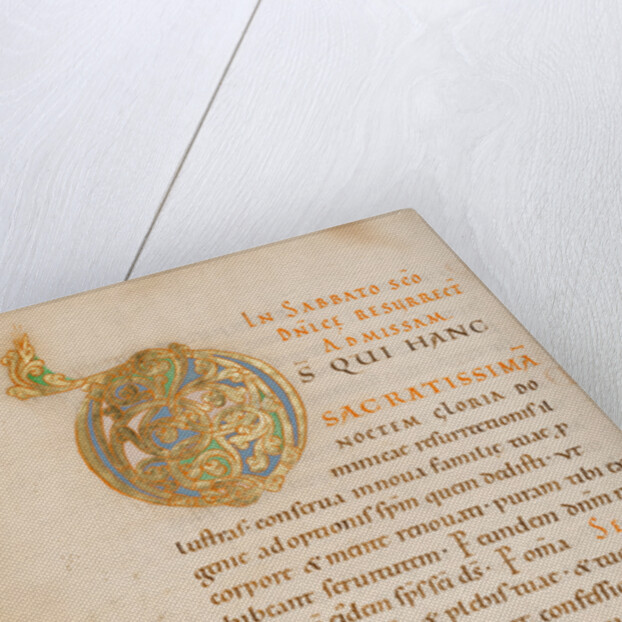 IN SABBATO SCŌ
DNĪCĘ RESURRECT̄
AD MISSAM.
S̄ QUI HANC
SACRATISSIMĀ
NOCTEM GLORIA DO
minicae resurrectionis il
lustras. conserua in noua familię tuae p
genie adoptionis spm̄ quem dedisti. ut
corpore & mente renouati. puram tibi ex
hibeant seruitutem. P eundem dnm̄ n
eidem sps̄ sci ds̄. P om̄a
& plebis tuae. & tuo
confessio